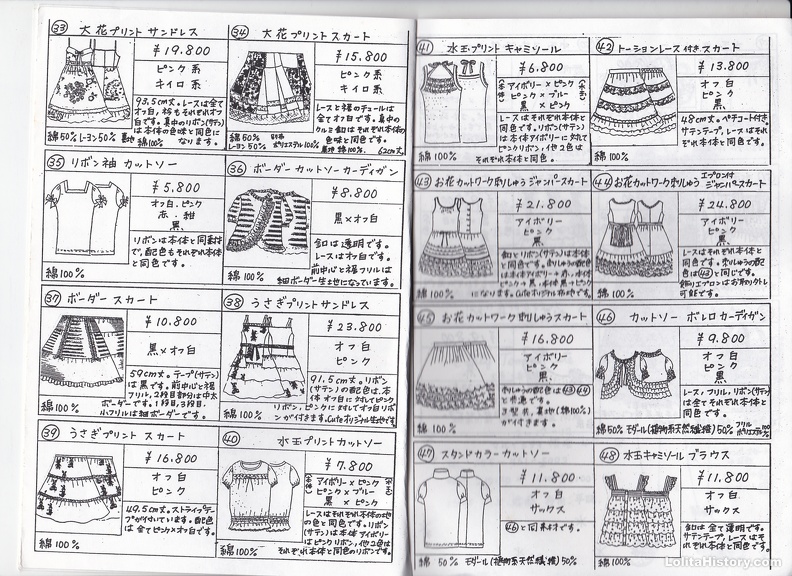 ㉝ 大花プリント サンドレス
¥19.800
ピンク系
キイロ系
93.5cm丈。レースは全て
オフ白、衿もそれぞれオフ
白です。裏中のリボン(サテン)
は本体の色味と同色に
なります。
綿50% レーヨン50% 裏地 綿100%
㉞ 大花プリント スカート
¥15.800
ピンク系
キイロ系
レースと裾のチュールは
全てオフ白です。裏中の
クルミ釦はそれぞれ本体の
色味と同色です。
裏地 綿100%. 62cm丈
綿50%
レーヨン50%
ポリエステル100%
㉟ リボン袖 カットソー
¥5.800
オフ白.ピンク
赤・紺
黒
リボンは本体と同素材
で、配色もそれぞれ本体
と同色です。
綿100%
㊱ ボーダー カットソーカーディガン
¥8.800
黒×オフ白
釦は透明です。
レースはオフ白です。
前中心と裾フリルは
細ボーダー生地になっています。
綿100%
㊲ ボーダー スカート
¥10.800
黒×オフ白
59cm丈。テープ(サテン)
は黒です。前中心と裾
フリル,2段目部分は中太
ボーダーです。1段目,3段目,
小フリルは細ボーダーです。
綿100%
㊳ うさぎプリント サンドレス
¥23.800
オフ白
ピンク
91.5cm丈。リボン
(サテン)の配色は、本
体オフ白に対してピンク
リボン,ピンクに対してオフ白リボン
が付きます。Cuteオリジナル生地です
綿100%
㊴ うさぎプリント スカート
¥16.800
オフ白
ピンク
49.5cm丈。ストライプテー
プが付いています。配色
は全てピンク×オフ白です。
綿100%
㊵ 水玉プリントカットソー
¥7.800
(本体) アイボリー×ピンク (水玉)
ピンク×ブルー
黒×ピンク
レースはそれぞれ本体の地
の色と同色です。リボン
(サテン)は本体アイボリー
はピンクリボン,他2色は
それぞれ本体と同色のリボンです。
綿100%
㊶ 水玉プリント キャミソール
¥6.800
(本体) アイボリー×ピンク (水玉)
ピンク×ブルー
黒×ピンク
レースはそれぞれ本体と
同色です。リボン(サテン)
は本体アイボリーに対して
ピンクリボン,他2色は
それぞれ本体と同色。
綿100%
㊷ トーションレース付きスカート
¥13.800
オフ白
ピンク
黒
48cm丈。ペチコート付き。
サテンテープ,レースはそれ
ぞれ本体と同色です。
綿100%
㊸ お花カットワーク刺しゅうジャンパースカート
¥21.800
アイボリー
ピンク
黒
釦とリボン(サテン)は本体
と同色です。刺しゅうの配
色は本体アイボリー+赤,本体
ピンク+黒,本体黒+ピンク
になります。Cuteオリジナル形地です。
綿100%
㊹ お花カットワーク刺しゅう エプロン付ジャンパースカート
¥24.800
アイボリー
ピンク
黒
レースはそれぞれ本体と
同色です。刺しゅうの配
色は㊸と同じです。
飾りエプロンはお取り外し
可能です。
綿100%
㊺ お花カットワーク刺しゅうスカート
¥16.800
アイボリー
ピンク
黒
刺しゅうの配色は㊸㊹
と共通です。
裏地(綿100%)
が付きます。
綿100%
㊻ カットソー ボレロカーディガン
¥9.800
オフ白
ピンク
黒
レース,フリル,リボン(サテン)
は全てそれぞれ本体と同
色です。
綿50% モダール(植物系天然繊維)50% フリル ポリエステル100%
㊼ スタンドカラーカットソー
¥11.800
オフ白
サックス
㊻と同素材です。
綿50% モダール(植物系天然繊維)50%
㊽ 水玉キャミソールブラウス
¥11.800
オフ白
サックス
釦は全て透明です。
サテンテープ,レースはそ
れぞれ本体と同色です。
綿100%
LolitaHistory.com